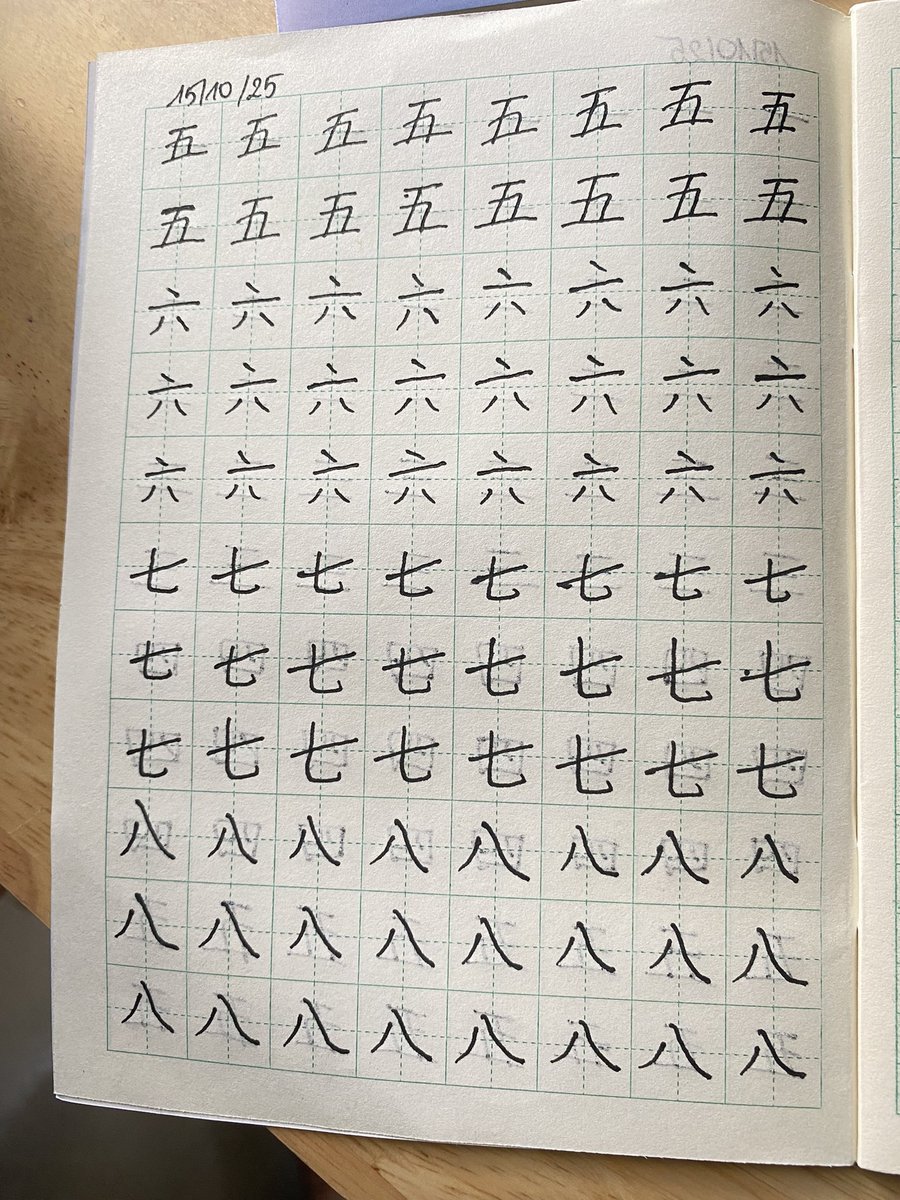 15/10/25
五五五五五五五五
五五五五五五五五
六六六六六六六六
六六六六六六六六
六六六六六六六六
七七七七七七七七
七七七七七七七七
七七七七七七七七
八八八八八八八八
八八八八八八八八
八八八八八八八八